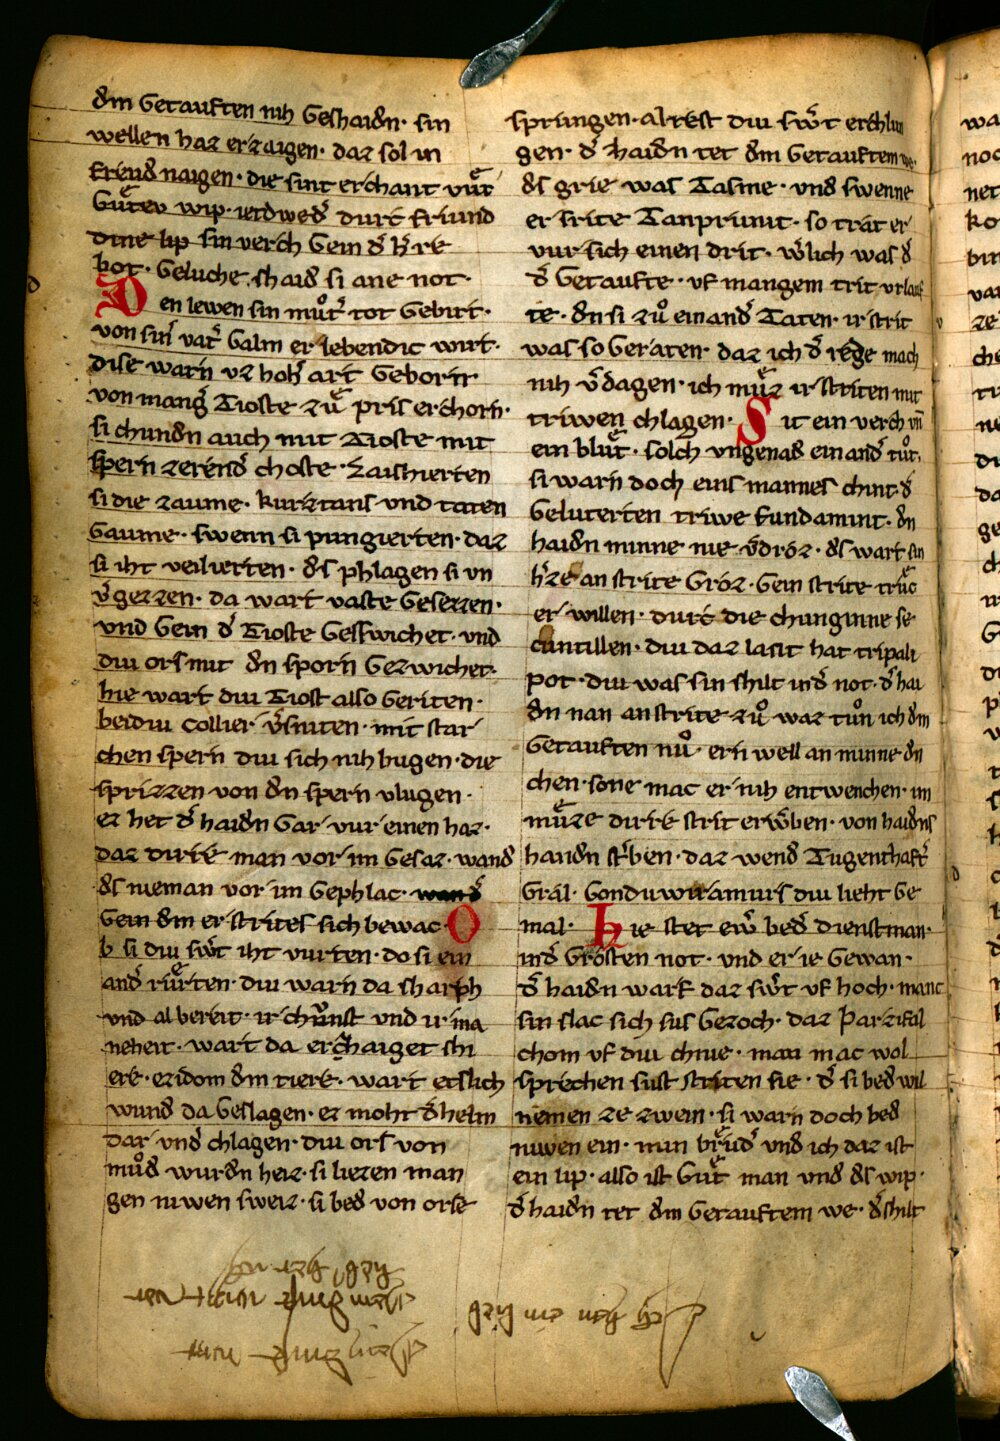 dm Getauften niht Geshaidn · sin
wellen haz erzaigen · daz sol in
freud naigen · die sint erchant vuͤr
Guͤteu wip · ietdweď durͨ friund
dine lip sin verch Gein ď h̓te
bot · Geluche shaid si ane not ·
Den lewen sin muͦt̓ tot Gebirt ·
von sin̓ vat̓ Galm er lebendic wirt ·
dise warn vz hoh̓ art Geborn ·
von mang̓ Tioste zuͤ pris erchorn ·
si chundn auch mit Tioste mit
spern zerend̓ choste · Laishierten
si die zaume · kurztans vnd taten
Gaume · swenn si pungierten · daz
si iht veilierten · ds phlagen si vn
v̓gezzen · da wart vaste Gesezzen ·
vnd Gein ď Tioste Gesswichet · vnd
diu ors mit dn sporn Gezwichet ·
hie wart diu Tiost also Geriten ·
beidiu collier v̓sniten · mit star
chen spern diu sich niht bugen · die
sprizzen von dn spern vlugen ·
ez het ď haidn Gar vur einen haz ·
daz dirre man vor im Gesaz · wand
ds nieman vor im Gephlac ·
Gein dm er strites sich bewac · O
b si diu sw̓t iht vurten · do si ein
and̓ ruͤrten · diu warn da sharph
vnd al bereit · ir chunst vnd ir ma
neheit · wart da erchaiget shi
ere · ezidom dm tiere · wart etslich
wund da Geslagen · ez moht ď helm
dar vnď chlagen · diu ors von
muͦd wurdn heiz · si liezen man
gen niwen sweiz · si bed von orse
sprungen · alrest diu sw̓t erchlun
gen · ď haidn tet dm Getauftem we ·
ds grie was Tasme · vnd swenne
er srite Tanprunit · so trat er
vur sich einen drit · w̓lich was ď
ď Getaufte · vf mangem trit vrlauf
te · dn si zuͦ ein and̓ Taten · ir strit
was so Geraten · daz ich ď rede mach
niht v̓dagen · ich muͤz ir striten mit
triwen chlagen · Sit ein verch vn̄
ein bluͤt · solch vngenad ein and̓ tuͦt ·
si warn doch eins mannes chint · ď
Geluterten triwe fundamint · dn
haidn minne nie v̓droz · ds wart sin
h̓ze an strite Groz · Gein strite truͤc
er willen · durͨ die chunginne se
cuntillen · diu daz lant hat tripali
bot · diu was sin shilt inď not · ď hai
dn nan an strite zuͦ waz tuͦn ich dm
Getauften nuͦ · ern well an minne dn
chen · sone mac er niht entwenchen · im
muͤze dirre strit erw̓ben · von haidns
handn st̓ben · daz wend Tugenthaft̓
Gral · Gonduwiramurs diu lieht Ge
mal · Hie stet ew̓ bed̓ dienstman ·
inď Grosten not · vnd er ie Gewan ·
ď haidn warf daz sw̓t vf hoch · manc
sin slac sich sus Gezoch · daz Parzifal
chom vf diu chnie · man mac wol
sprechen sust striten sie · ď si bed wil
nemen ze zwein · si warn doch bed
niwen ein · min bruͤd̓ vnd ich daz ist
ein lip · also ist Guͤt man vnd ds wip ·
ď haidn tet dm Getauftem we · ď shilt